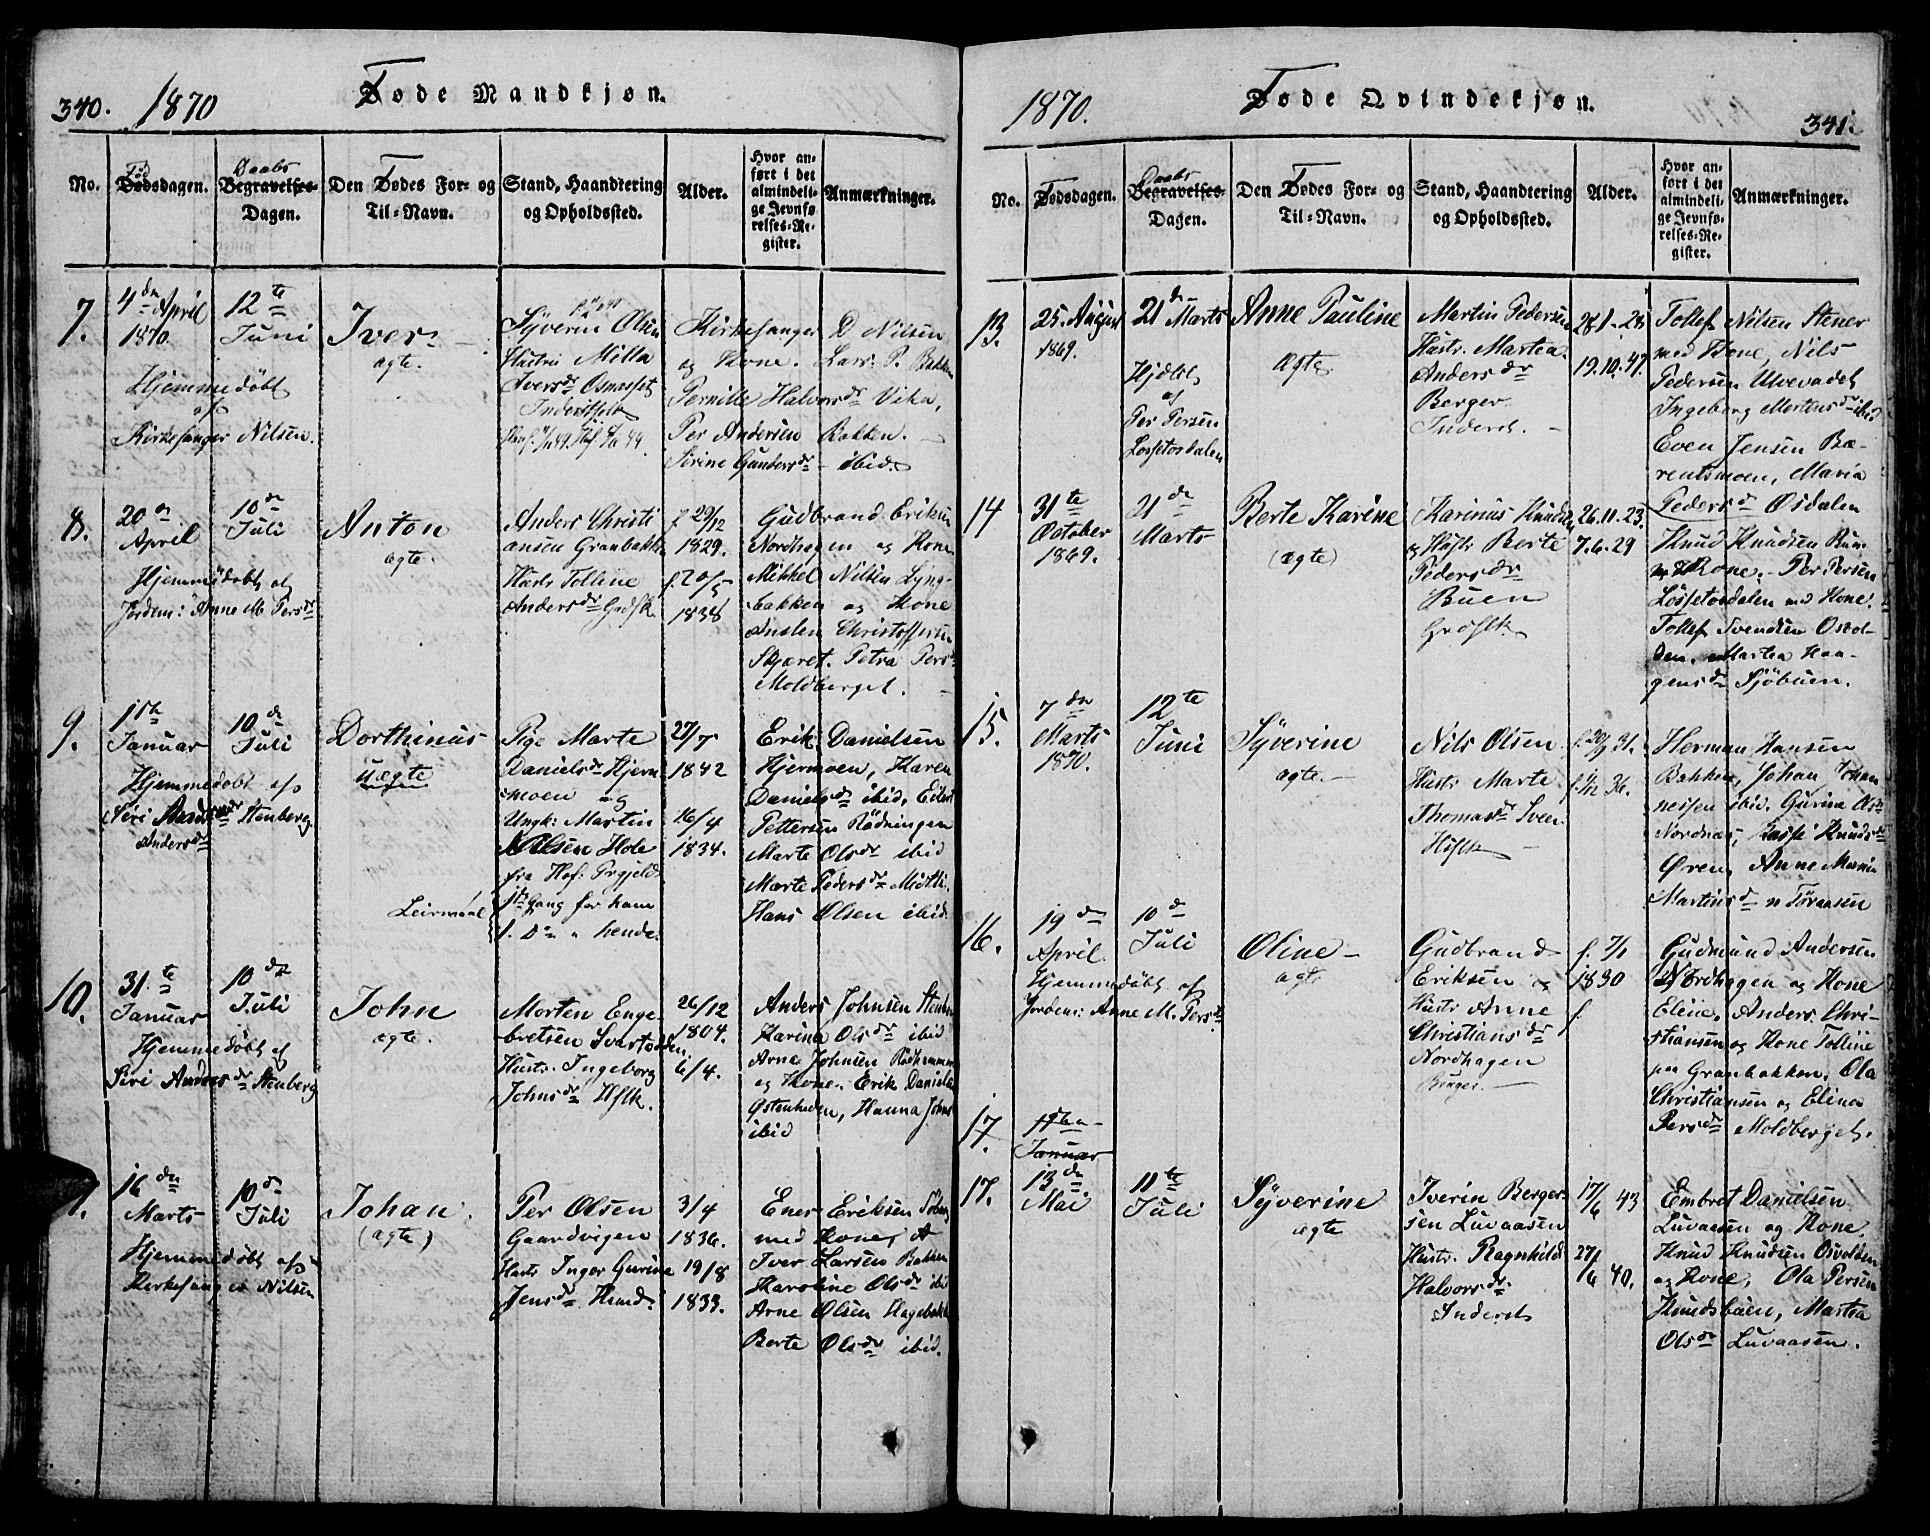 340.
1870
Føde Mandkjøn.
No.
Fød
Dødsdagen.
Daabs
Begravelses-
Dagen.
Den Fødes For- og
Til-Navn.
Stand, Haandtering
og Opholdssted.
Alder.
Hvor an-
ført i det
almindeli-
ge Jevnfø-
relses-Re-
gister.
Anmærkninger.
7.
4de April
1870.
Hjemmedøbt
af
Kirkesanger Nilsen.
12te
Juni
Iver
ægte.
Syverin Olsen
Hustru Milla
Iversdr Osmosset
Inderst
Kirkesanger D Nilsen
og Kone. Lars P. Bakken
Pernille Halvorsdr Vika,
Per Andersen Bakken.
Sirine Gundersdr ibid.
8.
20de
April
Hjemmedøbt af
Jordem: Anne M. Persdr
10de
Juli
Anton
ægte.
Anders Christi
ansen Granbakke
Hustr Tolline
Andersdr Grdsk.
f. 29/12
1829.
f. 20/5
1838
Gudbrand Eriksen
Nordhagen og Kone
Mikkel Nilsen Lyng-
bakken og Kone
Anslen Christoffersen
Skjæret. Petra Persdr
Moldberget.
9.
1ste
Januar
Hjemmedøbt af
Siri Stenberg
Andersdr
10de
Juli
Dorthinus
Uægte
Leirmaal
Pige Marte
Danielsdr Hjern
moen og
Ungk: Martin
Nilsen Hole
fra Hof: Prgjeld
1ste Gang for ham
1. Do " hende.
27/7
1842
16/4
1834.
Erik Danielsen
Hjermoen, Karen
Danielsdr ibid, Eilert
Pettersen Rødningen
Marte Olsdr ibid
Marte Pedersdr Midtli
Hans Olsen ibid.
10.
31te
Januar
Hjemmedøbt af
Siri Andersdr Stenberg
10de
Juli
John
ægte.
Morten Enge
bretsen Svartodden
Hustr. Ingeborg
Johnsdr Hflk.
26/12
1804.
6/4.
Anders Johnsen Stenb
Karina Olsdr ibid
Arne Johnsen Rødhammer
og Kone. Erik Daniels
Østenheden, Hanna Johns
ibid
16de
Marts
Hjemmedøbt af
Kirkesanger Nilsen
10de
Juli
Johan.
(ægte)
Per Olsen
Gaardvigen
Hustr Inger Gurine
Jensdr Husmd.
3/4
1836.
19/8
1833.
Ener Eriksen
med Kone,
Iver Larsen Bakken
Karoline Olsdr ibid
Arne Olsen Hagebakk
Berte Olsdr ibid.
1870.
Føde Qvindekjøn.
341.
No.
Fødsdagen.
Daabs
Begravelses-
Dagen.
Den Fødes For- og
Til-Navn.
Stand, Haandtering
og Opholdssted.
Alder.
Hvor an-
ført i det
almindeli-
ge Jevnfø-
relses-Re-
gister.
Anmærkninger.
13.
25. August
1869.
21de Marts
Hjdbt
af
Per Persen
Løssetosdalen
Anne Pauline
ægte.
Martin Pedersen
Hustr. Martea
Andersdr
Berger
Inderst.
28.1.28
19.10.47.
Tollef Nilsen Stener
med Kone, Nils
Pedersen Ulvevadet
Ingeborg Mortensdr ibid
Even Jensen Bæ-
rentsmoen, Maria
Pedersdr Osdalen
14
31te
October
1869.
21de
Marts
Berte Karine
(ægte)
Karinus Knudsen
og Hustr Berte
Pedersdr
Buen
Grdflk
26.11.23.
7.6.29
Knud Knudsen Buen
m Kone. Per Persen
Løssetosdalen med Kone.
Tollef Svendsen Osvol-
den. Martea Haa-
gensdr Sjøbuen.
15.
7de
Marts
1870.
12te
Juni
Syverine
ægte.
Nils Olsen
Hustr Marte
Thomasdr Sveen
Hflk
f. 20/9 31.
f. 1/12 36.
Herman Hansen
Bakken, Johan Johan
nessen ibid. Gurina Olsdr
Nordnæs, Knudsdr
Øren, Anne Maria
Martinsdr n Tøraasen
16.
19de
April
Hjemmedøbt af
Jordem: Anne M. Persdr.
10de
Juli
Oline
ægte
Gudbrand
Eriksen og
Hustr Anne
Christiansdr
Nordhagen
Bruger.
f. 7/1
1830
f.
Gudmund Andersen
Nordhagen og Kone
Eline, Anders Chri-
stiansen og Kone Tolline
paa Granbakken. Ola
Christiansen og Eline
Persdr Moldberget.
17.
11te
Januar
17.
13de
Mai
11te
Juli
Syverine
ægte
Iverin Berger
sen Luvaasen
Hustr. Ragnhild
Halvorsdr.
Inderst
17/6 43
27/6 40.
Embret Danielsen
Luvaasen og Kone.
Knud Knudsen Osvolden
og Kone, Ola Persen
Knudsbuen, Martea
Olsdr Luvaasen.